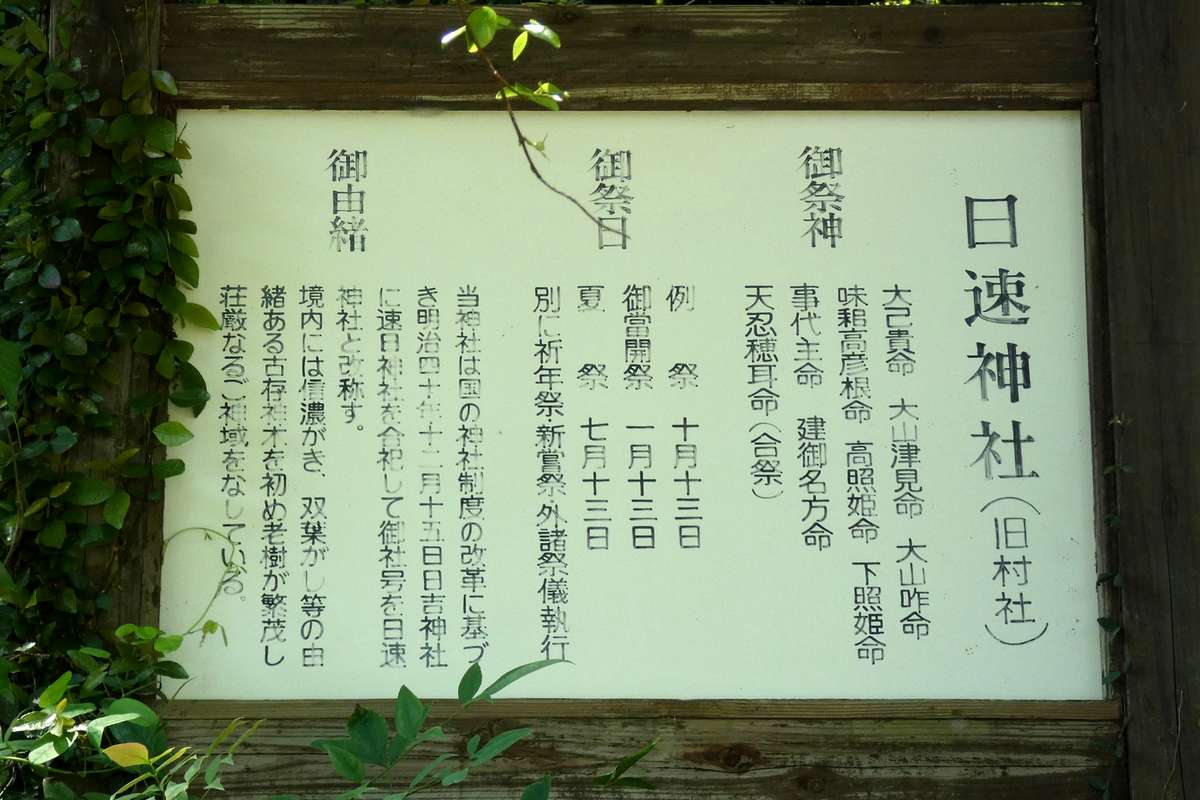 日速神社（旧村社）
御祭神
大己貴命　大山津見命　大山咋命
味耜高彦根命　高照姫命　下照姫命
事代主命　建御名方命
天忍穂耳命（合祭）
御祭日
例　祭　十月十三日
御當開祭　一月十三日
夏　祭　七月十三日
別に祈年祭・新嘗祭・外諸祭儀執行
御由緒
当神社は国の神社制度の改革に基づ
き明治四十年十二月十五日日吉神社
に速日神社を合祀して御社号を日速
神社と改称す。
境内には信濃がき、双葉がし等の由
緒ある古存神木を初め老樹が繁茂し
荘厳なるご神域をなしている。